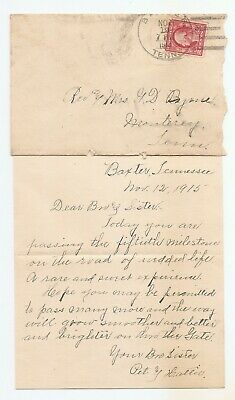 NO
7
TENN
Rev & Mrs. G. D. Byrne
Monterey,
Tenn.
Baxter, Tennessee
Nov. 12, 1915
Dear Bro & Sister.
Today you are
passing the fiftieth milestone
on the road of wedded life.
A rare and sweet experience.
Hope you may be permitted
to pass many more and the way
will grow smoother and better
and brighter on to the Gate.
Your Bro Sister